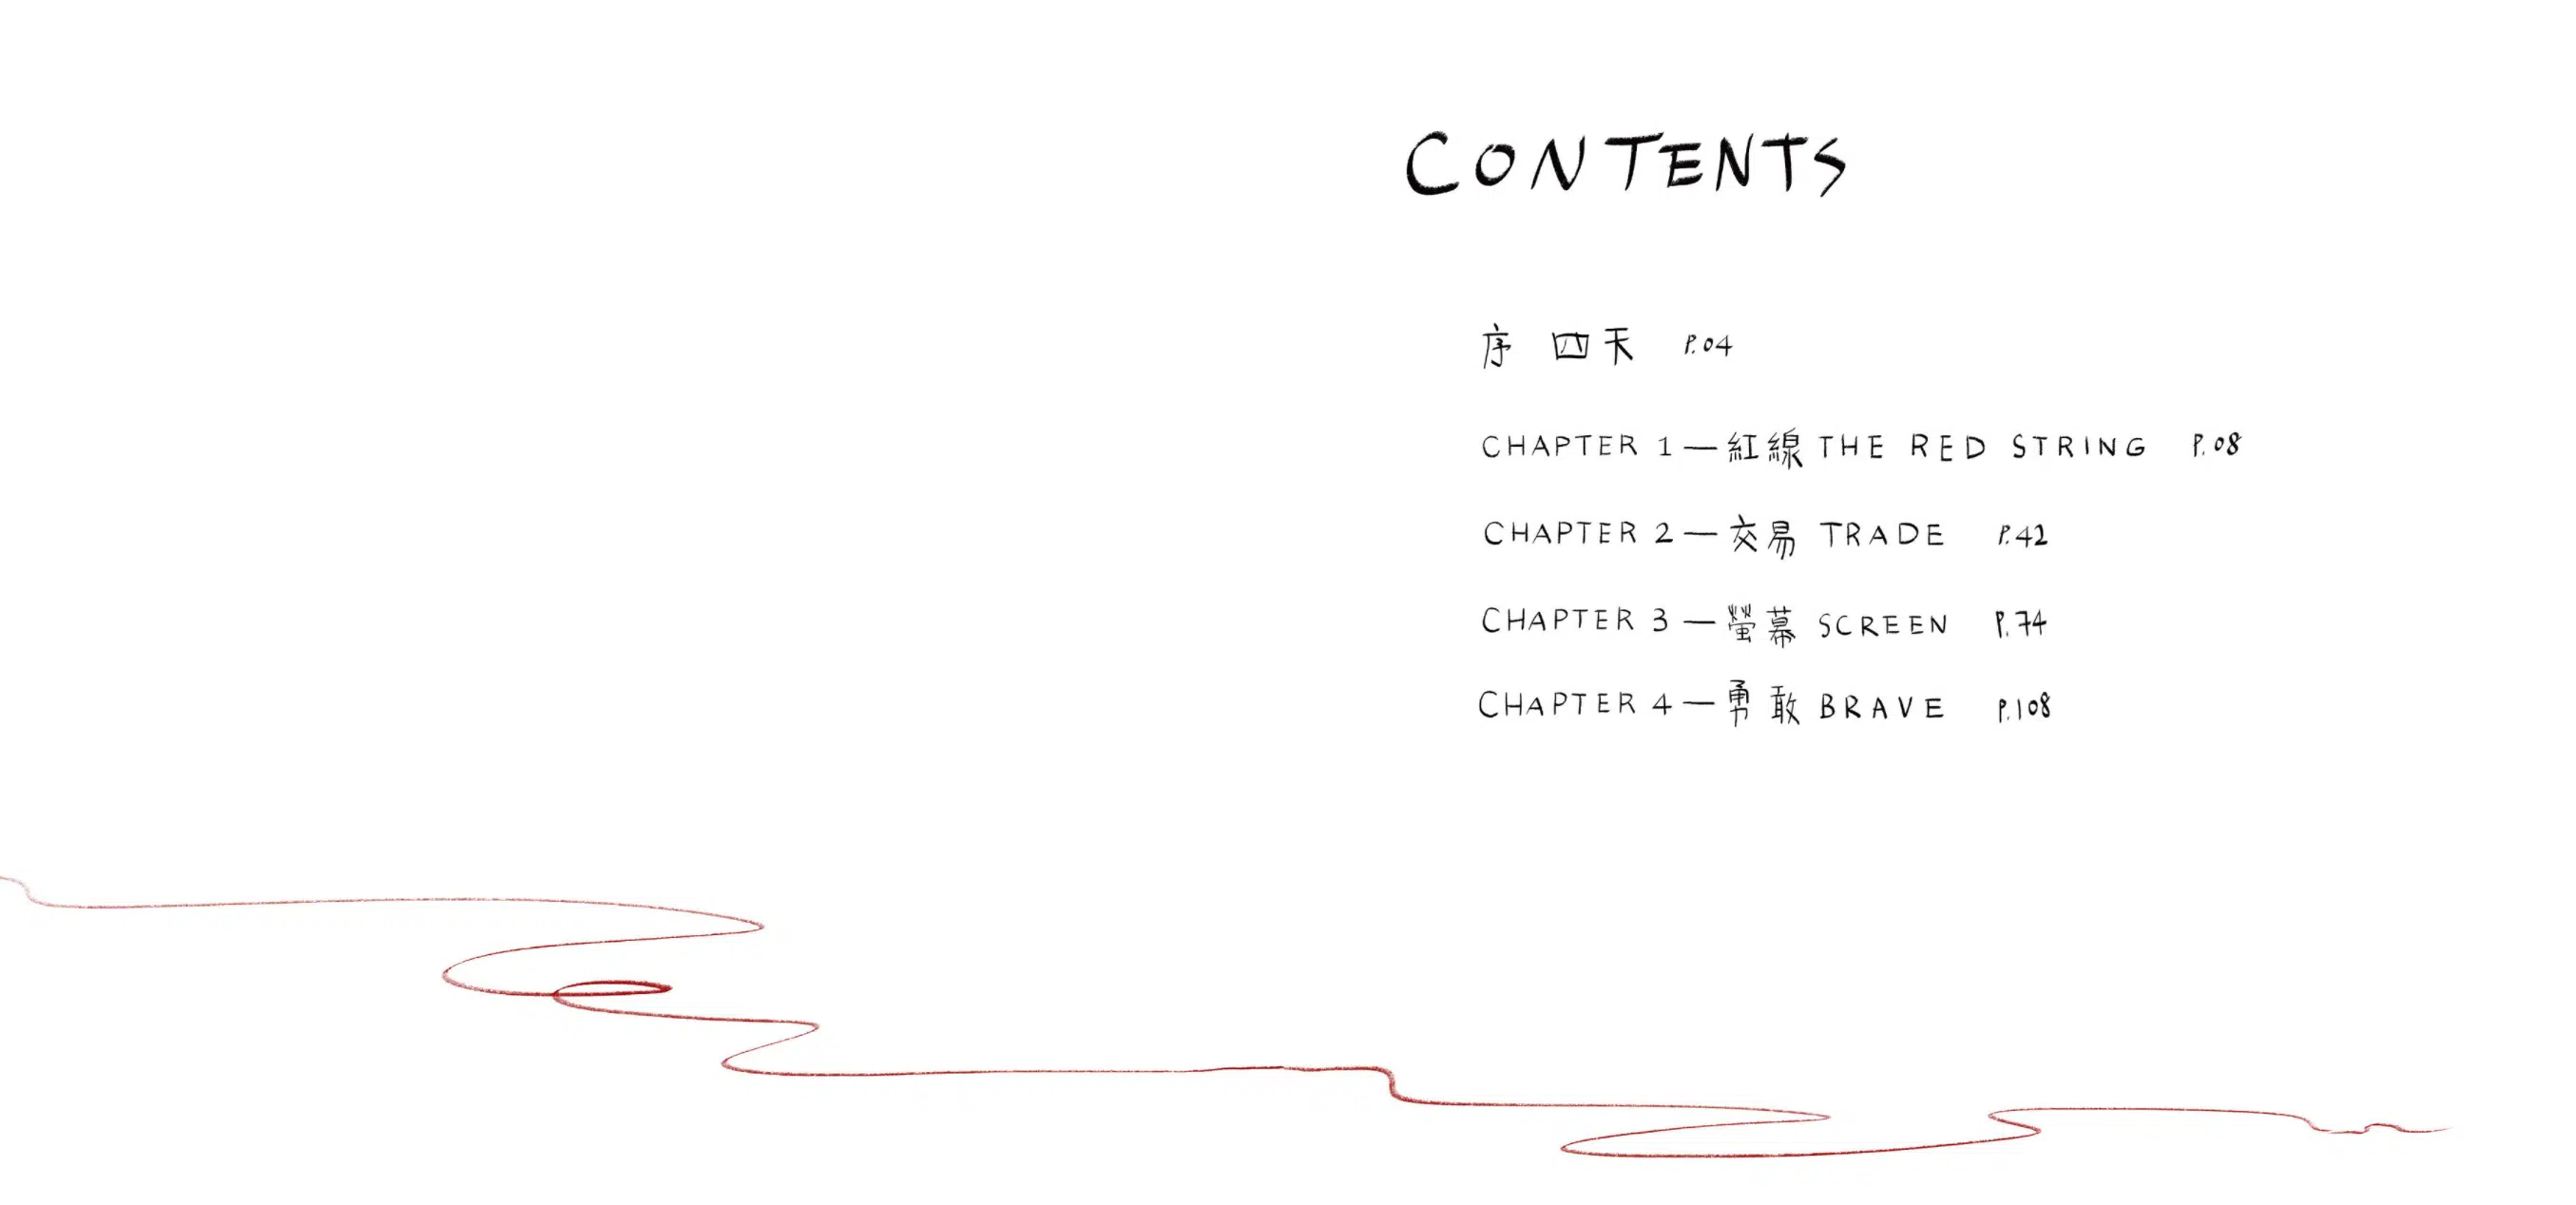 CONTENTS
序 四天 P.04
CHAPTER 1 — 紅線 THE RED STRING P.08
CHAPTER 2 — 交易 TRADE P.42
CHAPTER 3 — 螢幕 SCREEN P.74
CHAPTER 4 — 勇敢 BRAVE P.108